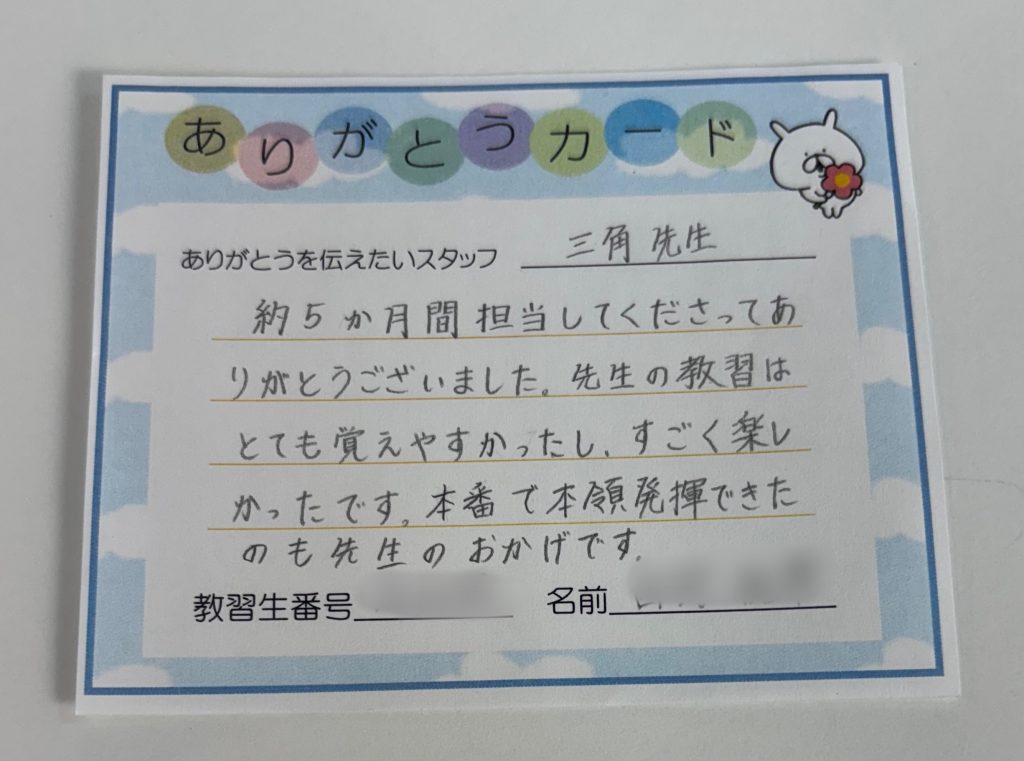 ありがとうカード
ありがとうを伝えたいスタッフ 三角先生
約5か月間担当してくださってあ
りがとうございました。先生の教習は
とても覚えやすかったし、すごく楽し
かったです。本番で本領発揮できた
のも先生のおかげです。
教習生番号 名前